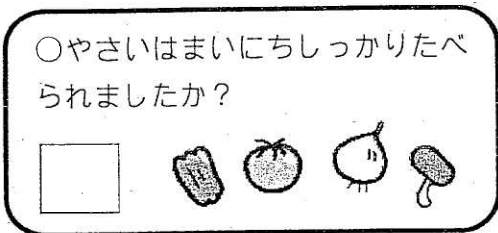 ○やさいはまいにちしっかりたべ
られましたか？